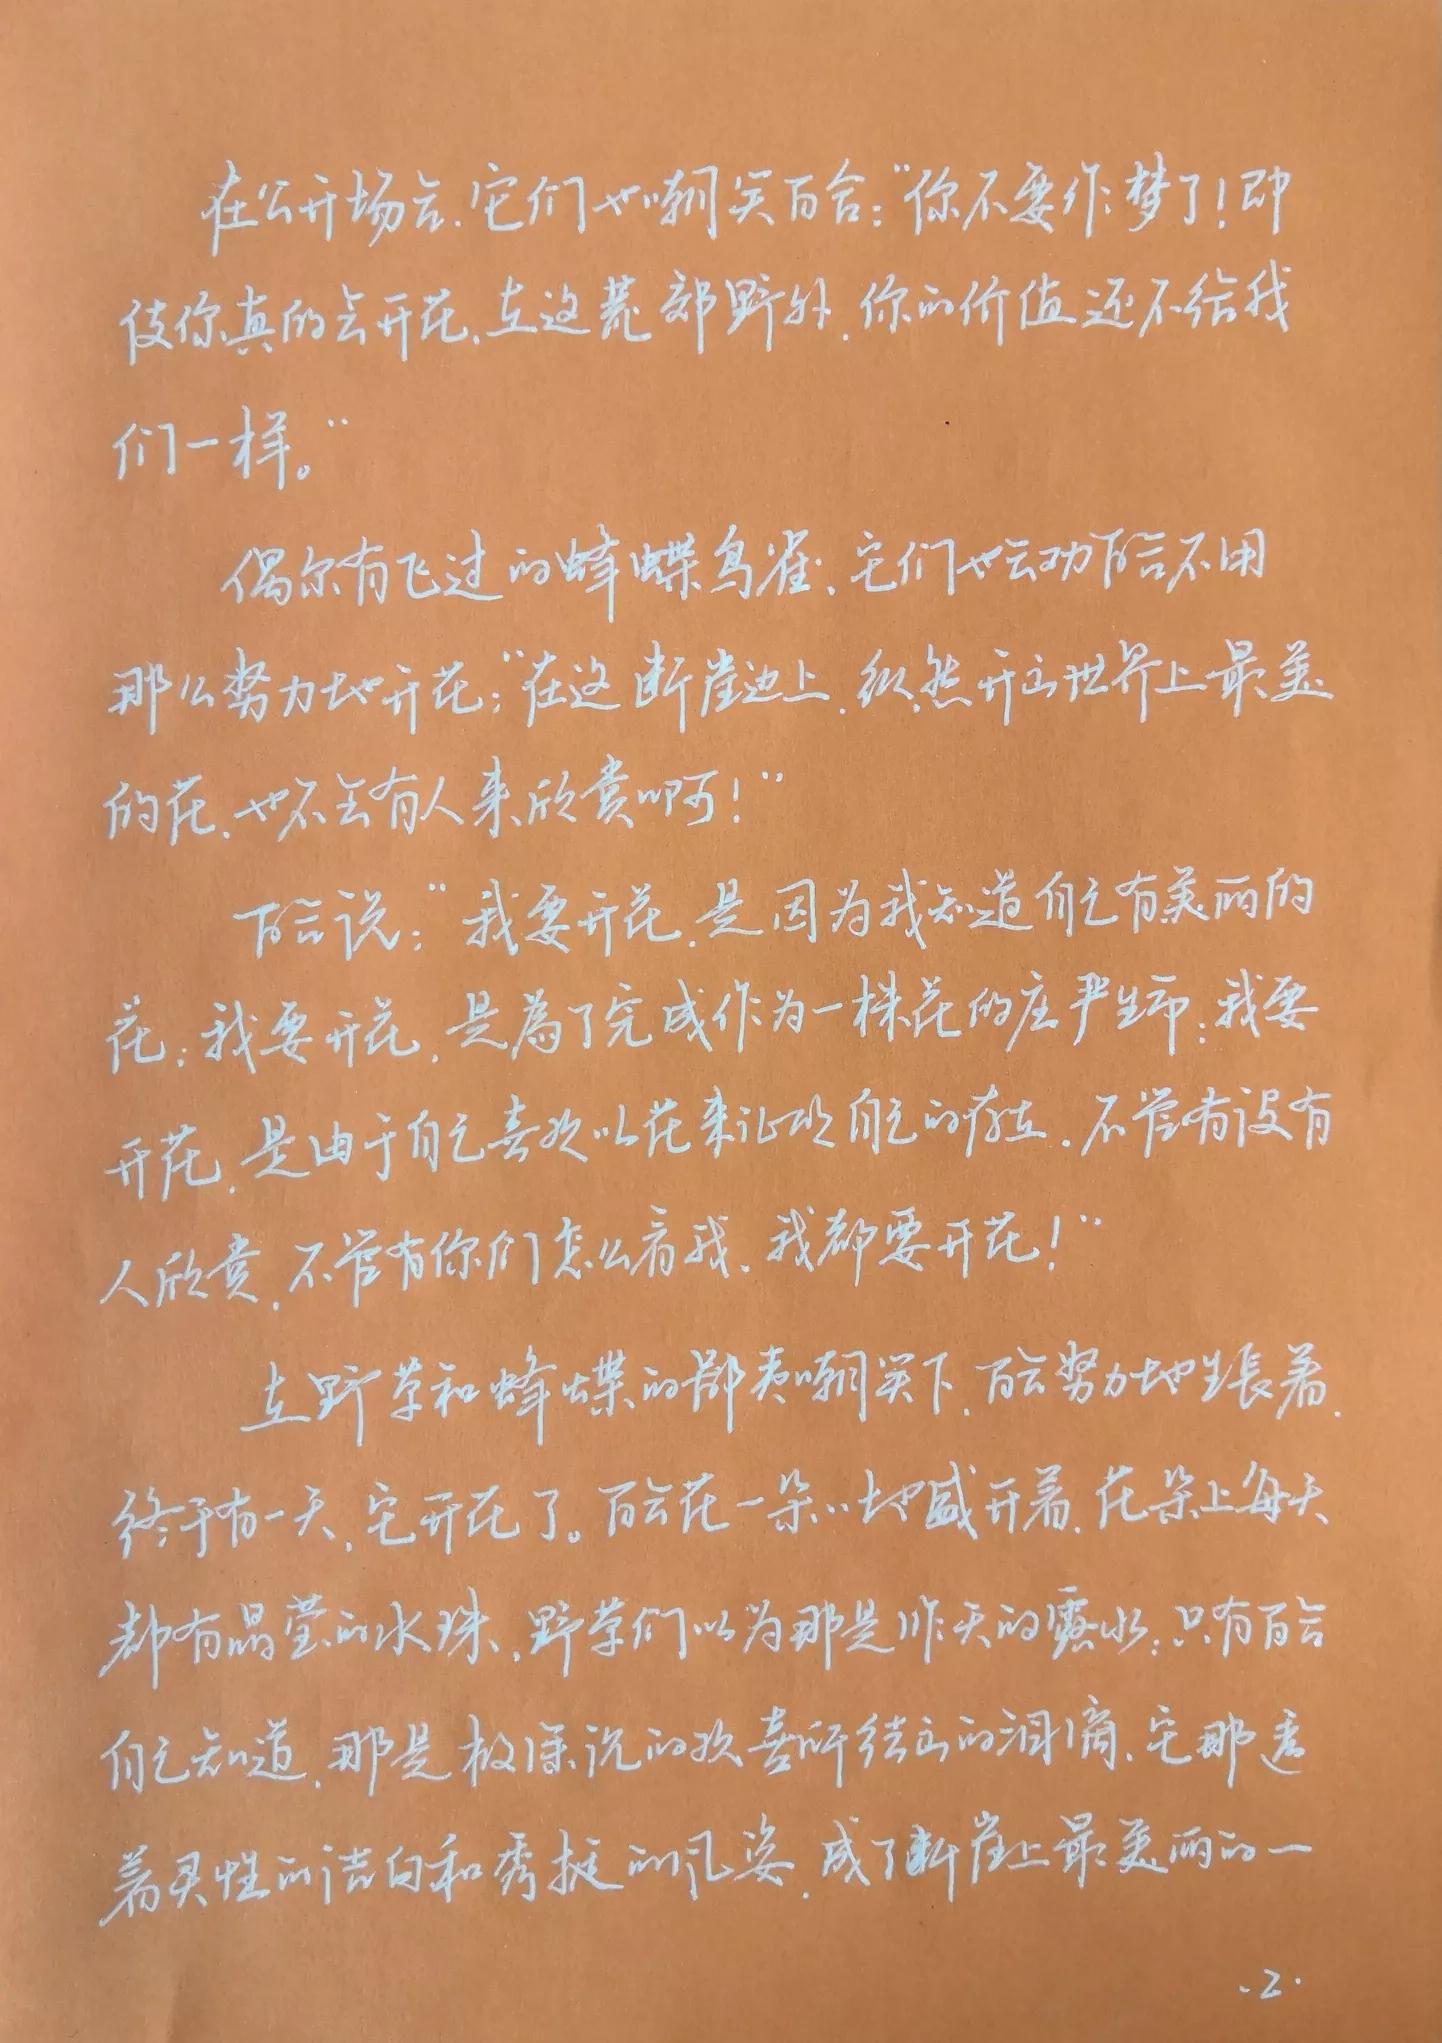 在公开场合，它们也嘲笑百合：“你不要作梦了！即
使你真的会开花，在这荒郊野外，你的价值还不给我
们一样。”
偶尔有飞过的蜂蝶鸟雀，它们也会劝百合不用
那么努力地开花：“在这断崖边上，纵然开出世界上最美
的花，也不会有人来欣赏啊！”
百合说：“我要开花，是因为我知道自己有美丽的
花；我要开花，是為了完成作为一株花的庄严生命；我要
开花，是由于自己喜欢以花来证明自己的存在。不管有没有
人欣赏，不管有你们怎么看我，我都要开花！”
在野草和蜂蝶的鄙夷嘲笑下，百合努力地生長着。
终于有一天，它开花了。百合花一朵々地盛开着，花朵上每天
都有晶莹的水珠，野草们以为那是昨天的露水；只有百合
自己知道，那是极深说的欢喜所结出的泪滴，它那透
着灵性的洁白和秀挺的风姿，成了断崖上最美丽的一
·2·